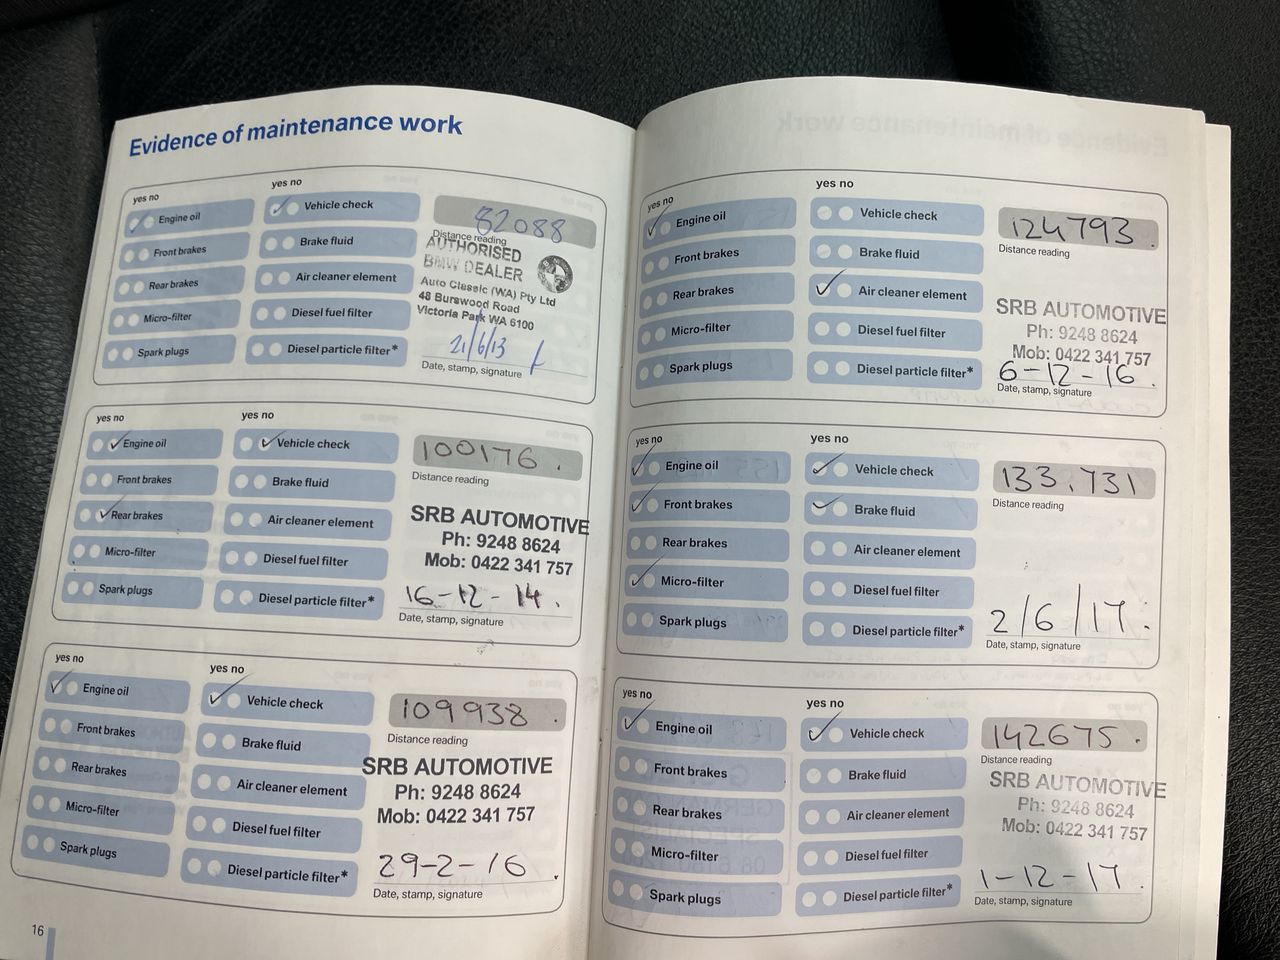 Evidence of maintenance work
yes no
yes no
Engine oil
Vehicle check
82088
Front brakes
Brake fluid
Distance reading
Rear brakes
Air cleaner element
AUTHORISED
BMW DEALER
Micro-filter
Diesel fuel filter
Auto Classic (WA) Pty Ltd
48 Burswood Road
Victoria Park WA 6100
Spark plugs
Diesel particle filter*
21/6/13
Date, stamp, signature
yes no
yes no
Engine oil
Vehicle check
100176.
Front brakes
Brake fluid
Distance reading
Rear brakes
Air cleaner element
SRB AUTOMOTIVE
Ph: 9248 8624
Mob: 0422 341 757
Micro-filter
Diesel fuel filter
Spark plugs
Diesel particle filter*
16-12-14.
Date, stamp, signature
yes no
yes no
Engine oil
Vehicle check
109938.
Front brakes
Brake fluid
Distance reading
Rear brakes
Air cleaner element
SRB AUTOMOTIVE
Ph: 9248 8624
Mob: 0422 341 757
Micro-filter
Diesel fuel filter
Spark plugs
Diesel particle filter*
29-2-16
Date, stamp, signature
16
yes no
yes no
Engine oil
Vehicle check
124793.
Front brakes
Brake fluid
Distance reading
Rear brakes
Air cleaner element
SRB AUTOMOTIVE
Ph: 9248 8624
Mob: 0422 341 757
Micro-filter
Diesel fuel filter
Spark plugs
Diesel particle filter*
6-12-16.
Date, stamp, signature
yes no
yes no
Engine oil
Vehicle check
133.731
Front brakes
Brake fluid
Distance reading
Rear brakes
Air cleaner element
Micro-filter
Diesel fuel filter
Spark plugs
Diesel particle filter*
2/6/17.
Date, stamp, signature
yes no
yes no
Engine oil
Vehicle check
142675.
Front brakes
Brake fluid
Distance reading
Rear brakes
Air cleaner element
SRB AUTOMOTIVE
Ph: 9248 8624
Mob: 0422 341 757
Micro-filter
Diesel fuel filter
Spark plugs
Diesel particle filter*
1-12-17.
Date, stamp, signature